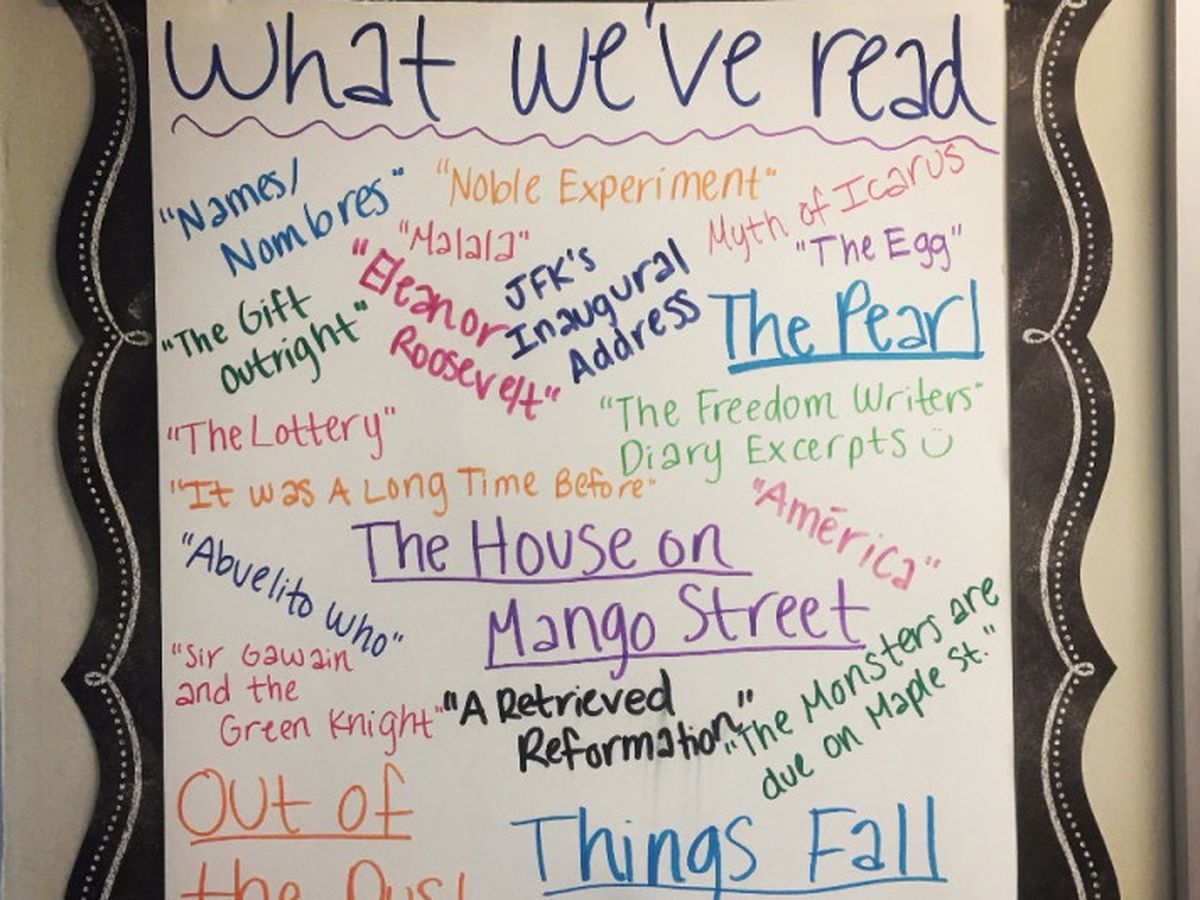 What we've read
"Names/
Nombres"
"Noble Experiment"
Myth of Icarus
"Malala"
"The Egg"
"Eleanor
Roosevelt"
JFK's
Inaugural
Address
"The Gift
outright"
The Pearl
"The Lottery"
"The Freedom Writers"
Diary Excerpts
"It was A Long Time Before"
"América"
The House on
Mango Street
"Abuelito who"
"Sir Gawain
and the
Green Knight"
"A Retrieved
Reformation"
"The Monsters are
due on Maple St."
Out of
the Dust
Things Fall